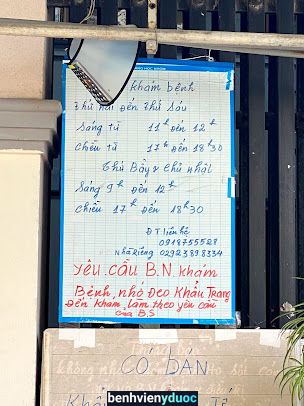 Khám bệnh
Thứ hai đến Thứ Sáu
Sáng từ 11h đến 12h
Chiều từ 17h đến 18h30
Thứ Bảy & Chủ nhật
Sáng 9h đến 12h
Chiều 17h đến 18h30
ĐT liên hệ
0918755528
Nhà Riêng 02923898334
Yêu cầu B.N khám
Bệnh, nhớ Đeo Khẩu Trang
Đến Khám, làm theo yêu cầu
của B.S
CÓ BÁN
benhvienyduoc